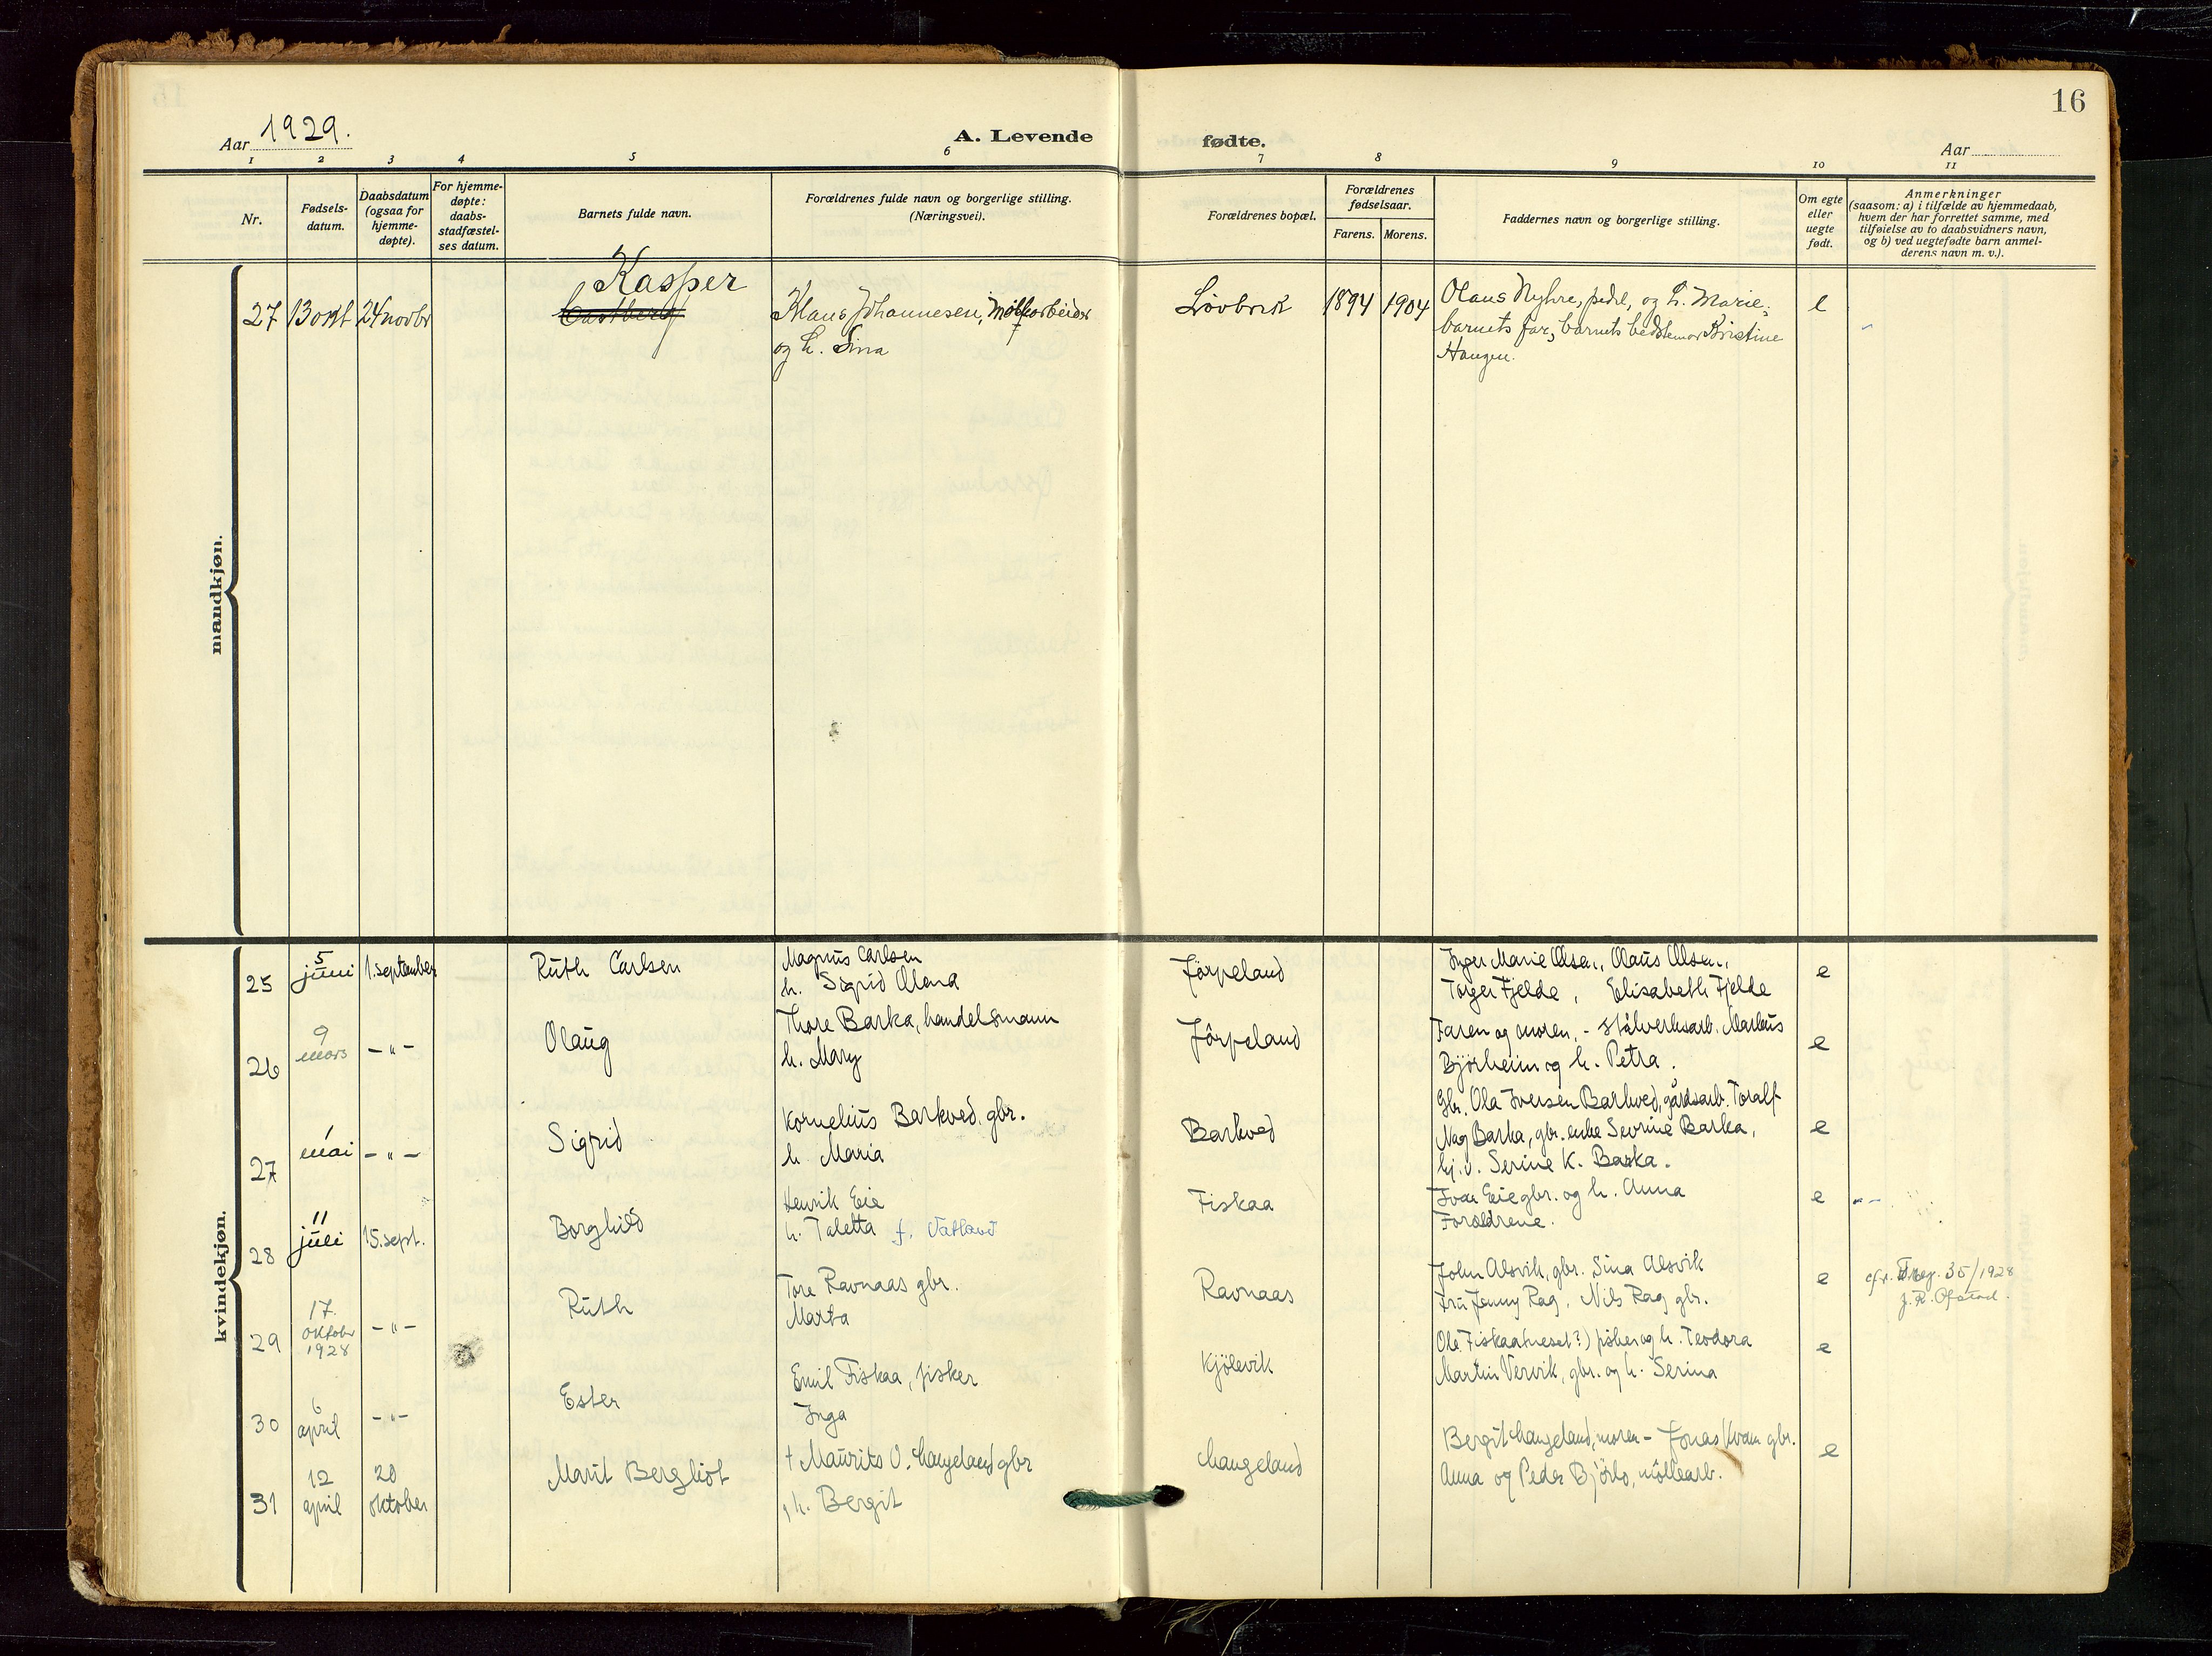 16
Aar 1929.
A. Levende
fødte.
Aar
1 2 3 4 5 6 7 8 9 10 11
Nr.
Fødsels-
datum.
Daabsdatum
(ogsaa for
hjemme-
døpte).
For hjemme-
døpte:
daabs-
stadfæstel-
ses datum.
Barnets fulde navn.
Forældrenes fulde navn og borgerlige stilling.
(Næringsvei).
Forældrenes bopæl.
Forældrenes
fødselsaar.
Farens. Morens.
Faddernes navn og borgerlige stilling.
Om egte
eller
uegte
født.
Anmerkninger
(saasom: a) i tilfælde av hjemmedaab,
hvem der har forrettet samme, med
tilføielse av to daabsvidners navn,
og b) ved uegtefødte barn anmel-
derens navn m. v.).
mandkjøn.
27 13 okt 24 novbr
Kasper
Klaus Johannesen,
og h. Sina
1894 1904
Olaus Nyhre, og h. Marie,
barnets far, barnets bedstemor Kristine
Haugen.
e
kvindekjøn.
25 5 juni 1. september
Ruth Carlsen
Magnus Carlsen
h. Sigrid Olena
Jörpeland
Inger Marie Olsen, Olaus Olsen,
Torger Fjelde, Elisabeth Fjelde
e
26 9 mars -"-
Olaug
Thore Barka, handelsmann
h. Mary
Jörpeland
Faren og moren, - stålverksarb. Markus
Björheim og h. Petra.
e
27 1 mai -"-
Sigrid
Kornelius Barkved, gbr.
h. Maria
Barkved
Gbr. Ola Iversen Barkved, gårdsarb. Toralf
Nag Barka, gbr. enke Sevrine Barka,
hj. v. Serine K. Barka.
e
28 11 juli 15. sept.
Borghild
Henrik Eie
h. Taletta f. Vatland
Fiskaa
Ivar Eie gbr. og h. Anna
Foreldrene.
e
29 17. oktober 1928 -"-
Ruth
Tore Ravnaas gbr.
Marta
Ravnaas
John Alsvik, gbr. Sina Alsvik
Fru Jenny Rag, Nils Rag gbr.
e
cfr. 35/1928
30 6 april -"-
Ester
Emil Fiskaa, fisker
Inga
Kjölevik
Ole Fiskaa(neset?) fisker og h. Teodora
Martin Vervik, gbr. og h. Serina
e
31 12 april 20 oktober
Marit Bergliot
† Maurits O. Langeland gbr
, h. Bergit
Langeland
Bergit Langeland, moren - Jonas Kvam gbr.
Anna og Peder Björbo, möllearb.
e